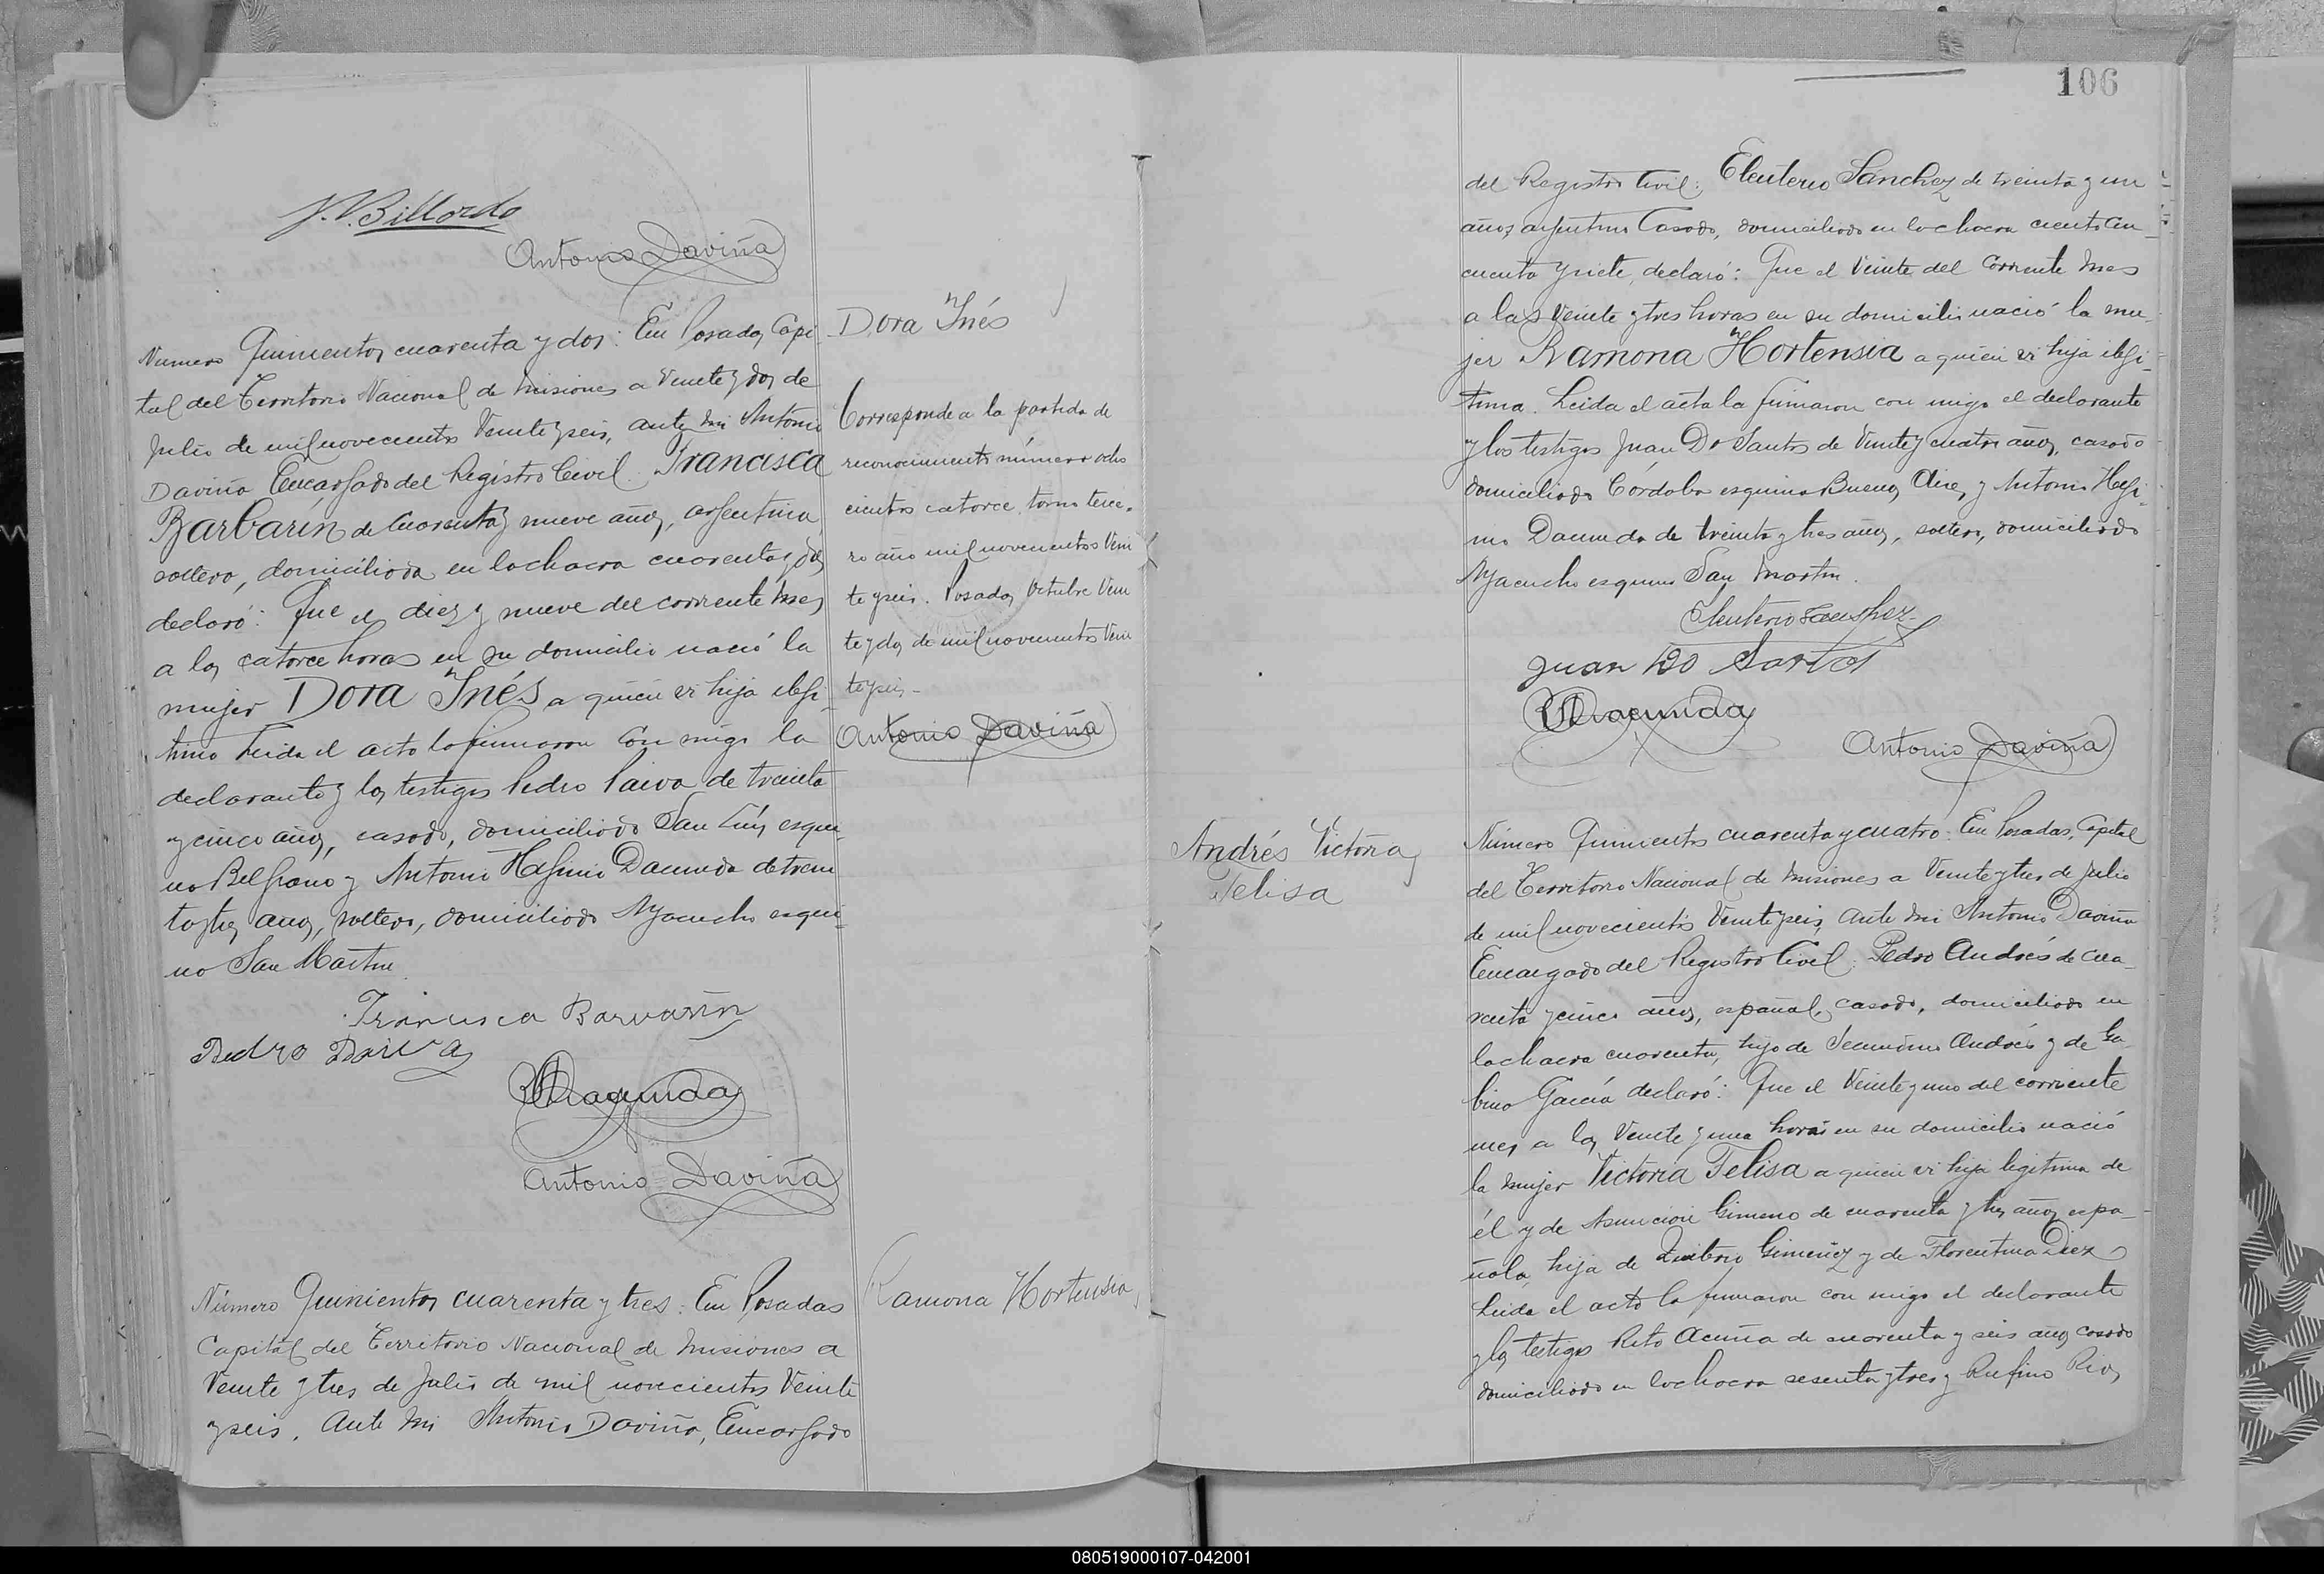 J. V. Billordo
Antonio Daviña
Número Quinientos cuarenta y dos: En Posadas Capi-
tal del Territorio Nacional de Misiones a Veinte y dos de
Julio de mil novecientos Veinte y seis, ante mi Antonio
Daviña Encargado del Registro Civil. Francisca
Barbarín de Cuarenta y nueve años, argentina
soltera, domiciliada en la chacra cuarenta y dos
declaró: Que el diez y nueve del corriente mes
a las catorce horas en su domicilio nació la
mujer Dora Inés a quien vi hija ilegi-
tima Leida el acta la firmaron con migo la
declarante y los testigos Pedro Paiva de treinta
y cinco años, casado, domiciliado San Luis esqui-
na Belgrano y Antonio Higinio Dacunda de trein
ta y tres años, soltero, domiciliado Ayacucho esqui-
na San Martin
Francisca Barvarin
Pedro Paiva
Dacunda
Antonio Daviña
Número Quinientos cuarenta y tres: En Posadas
Capital del Territorio Nacional de Misiones a
Veinte y tres de Julio de mil novecientos Veinte
y seis. Ante mi Antonio Daviña, Encargado
Dora Inés
Corresponde a la partida de
reconocimiento número ocho
cientos catorce tomo terce-
ro año mil novecientos Vein
te y seis. Posadas Octubre Vein
te y dos de mil novecientos Vein
te y seis-
Antonio Daviña
Ramona Hortensia
106
del Registro Civil: Eleuterio Sánchez de treinta y un
años, argentino Casado, domiciliado en la chacra ciento cin-
cuenta y siete, declaró: Que el Veinte del Corriente Mes
a las Veinte y tres horas en su domicilio nació la mu-
jer Ramona Hortensia a quien vi hija ilegi-
tima. Leida el acta la firmaron con migo el declarante
y los testigos Juan Do Santos de Veinte y cuatro años, casado
domiciliado Córdoba esquina Buenos Aires, y Antonio Higi-
nio Dacunda de treinta y tres años, soltero, domiciliado
Ayacucho esquina San Martin.
Eleuterio Sanchez
Juan Do Santos
Dacunda
Antonio Daviña
Andrés Victoria
Felisa
Número Quinientos cuarenta y cuatro: En Posadas, Capital
del Territorio Nacional de Misiones a Veinte y tres de Julio
de mil novecientos Veinte y seis, Ante mi Antonio Daviña
Encargado del Registro Civil: Pedro Andrés de cua-
renta y cinco años, español, casado, domiciliado en
la chacra cuarenta, hijo de Secundino Andrés y de Ga-
bina García declaró: Que el Veinte y uno del corriente
mes a las Veinte y una horas en su domicilio nació
la mujer Victoria Felisa a quien vi hija legitima de
él y de Asunción Gimeno de cuarenta y tres años, espa-
ñola, hija de Gimenez y de Florentina Diez
Leida el acta la firmaron con migo el declarante
y los testigos Rito Acuña de cuarenta y seis años casado
domiciliado en la chacra sesenta y tres y Rufino Rios
080519000107-042001